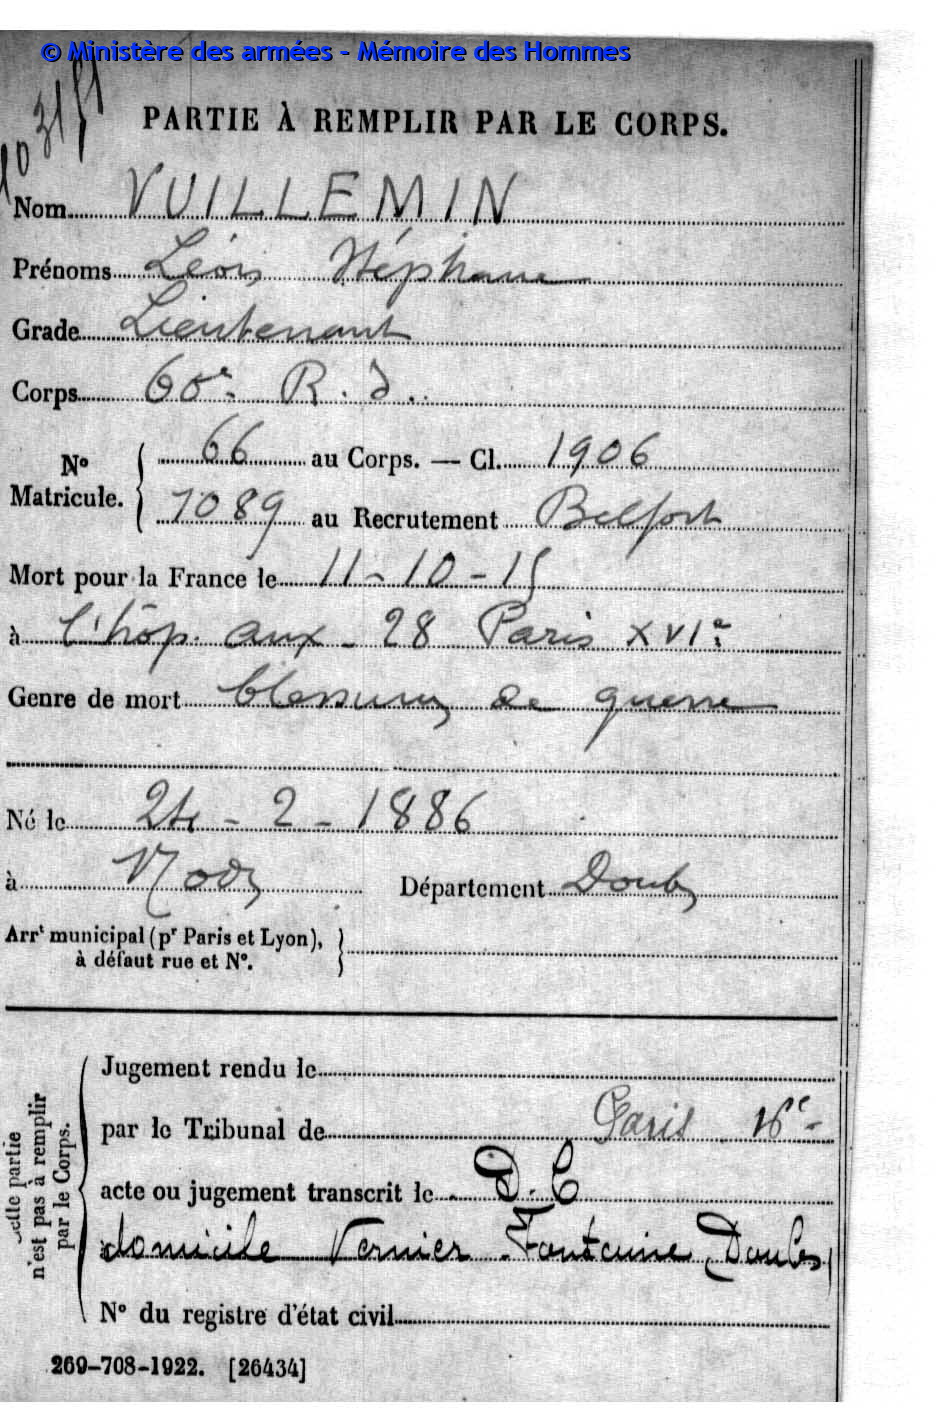 © Ministère des armées - Mémoire des Hommes
PARTIE À REMPLIR PAR LE CORPS.
Nom VUILLEMIN
Prénoms Léon Stéphane
Grade Lieutenant
Corps 60e R. I.
No Matricule. 66 au Corps. — Cl. 1906
1089 au Recrutement Belfort
Mort pour la France le 11-10-15
à l'hôp. aux - 28 Paris XVIe
Genre de mort blessures de guerre
Né le 24-2-1886
à Nods Département Doubs
Arrt municipal (pr Paris et Lyon),
à défaut rue et No.
Cette partie
n'est pas à remplir
par le Corps.
Jugement rendu le
par le Tribunal de Paris 16e
acte ou jugement transcrit le D.C
domicile Vernier Fontaine Doubs
No du registre d'état civil
269-708-1922. [26434]